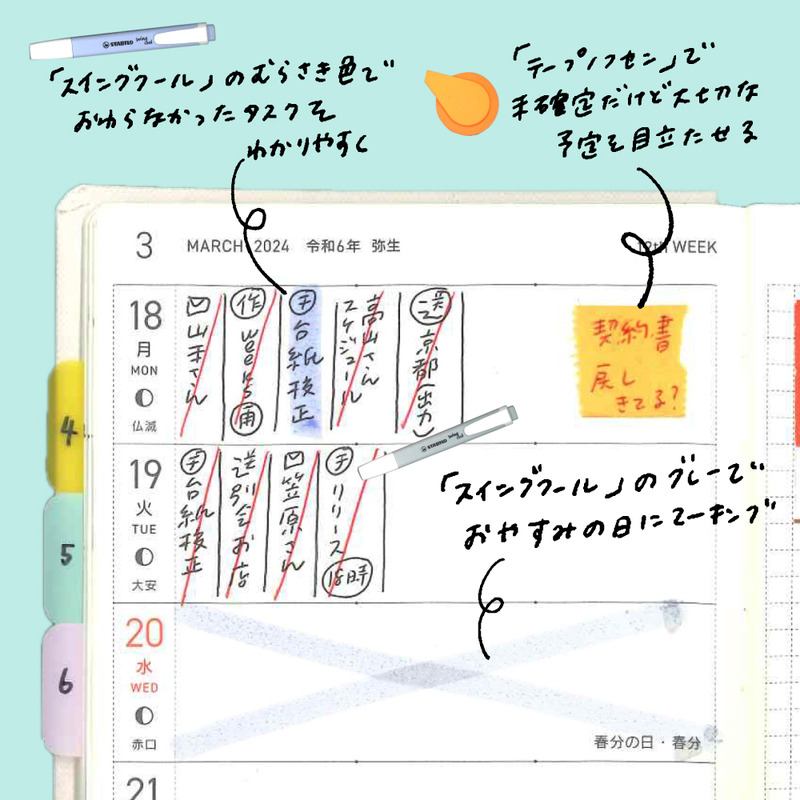 STABILO swing cool
「スイングクール」のむらさき色で
おわらなかったタスクを
わかりやすく
「テープノフセン」で
未確定だけど大切な
予定を目立たせる
3 MARCH 2024 令和6年 弥生
12th WEEK
18
月
MON
仏滅
山本さん
作
手 台紙校正
高山さん
スケジュール
送 京都(出力)
契約書
戻し
きてる?
4
19
火
TUE
大安
手 台紙校正
送別会お店
笠原さん
手 リリース 18時
STABILO swing cool
「スイングクール」のグレーで
おやすみの日にマーキング
5
20
水
WED
赤口
春分の日・春分
6
21